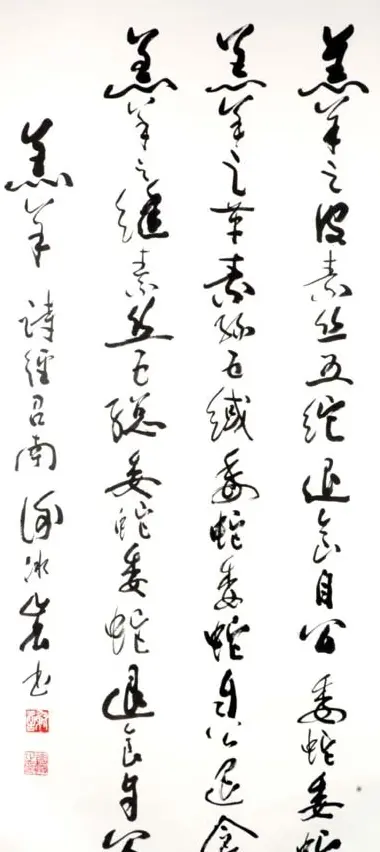 羔羊之皮素丝五紽退食自公委蛇委蛇
羔羊之革素丝五緎委蛇委蛇自公退食
羔羊之缝素丝五總委蛇委蛇退食自公
羔羊 詩經召南 徐冰岩书